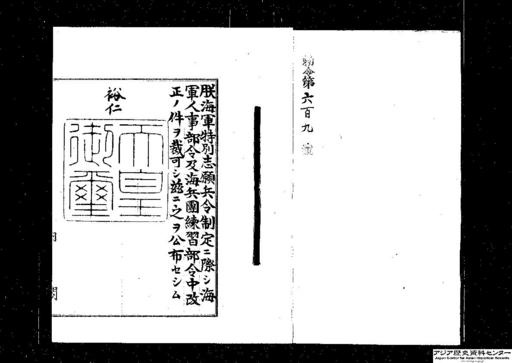 勅令第六百九號
朕海軍特別志願兵令制定ニ際シ海
軍人事部令及海兵團練習部令中改
正ノ件ヲ裁可シ茲ニ之ヲ公布セシム
裕仁
天皇
御璽
内
閣
アジア歴史資料センター
Japan Center for Asian Historical Records